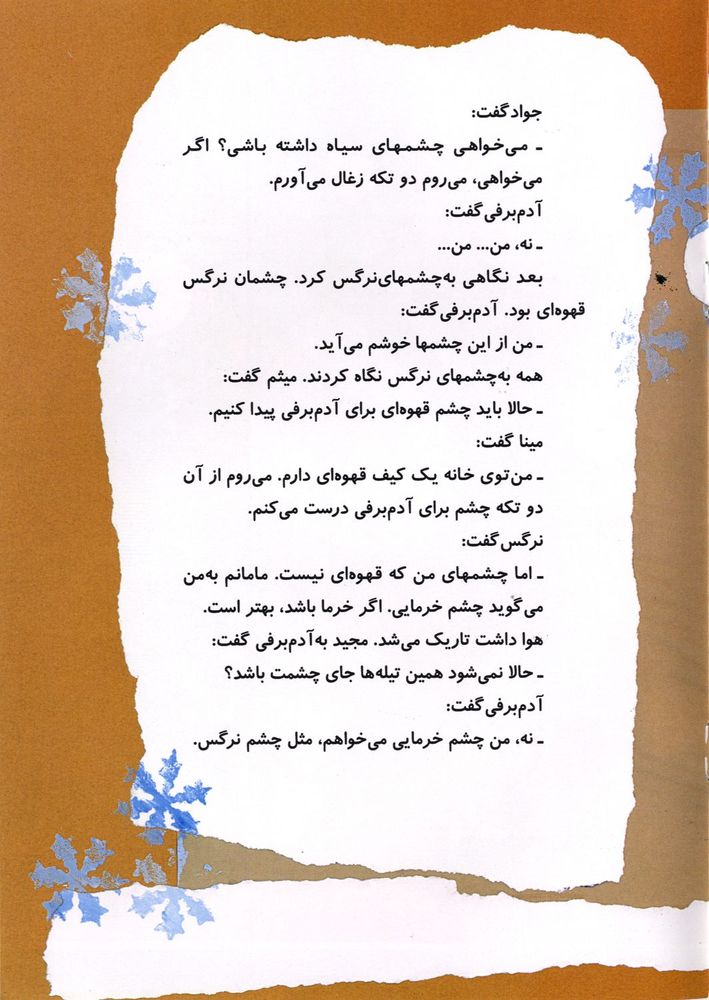 جواد گفت:
ـ می‌خواهی چشمهای سیاه داشته باشی؟ اگر
می‌خواهی، می‌روم دو تکه زغال می‌آورم.
آدم‌برفی گفت:
ـ نه، من... من...
بعد نگاهی به‌چشمهای‌نرگس کرد. چشمان نرگس
قهوه‌ای بود. آدم‌برفی گفت:
ـ من از این چشمها خوشم می‌آید.
همه به‌چشمهای نرگس نگاه کردند. میثم گفت:
ـ حالا باید چشم قهوه‌ای برای آدم‌برفی پیدا کنیم.
مینا گفت:
ـ من توی خانه یک کیف قهوه‌ای دارم. می‌روم از آن
دو تکه چشم برای آدم‌برفی درست می‌کنم.
نرگس گفت:
ـ اما چشمهای من که قهوه‌ای نیست. مامانم به‌من
می‌گوید چشم خرمایی. اگر خرما باشد، بهتر است.
هوا داشت تاریک می‌شد. مجید به‌آدم‌برفی گفت:
ـ حالا نمی‌شود همین تیله‌ها جای چشمت باشد؟
آدم‌برفی گفت:
ـ نه، من چشم خرمایی می‌خواهم، مثل چشم نرگس.